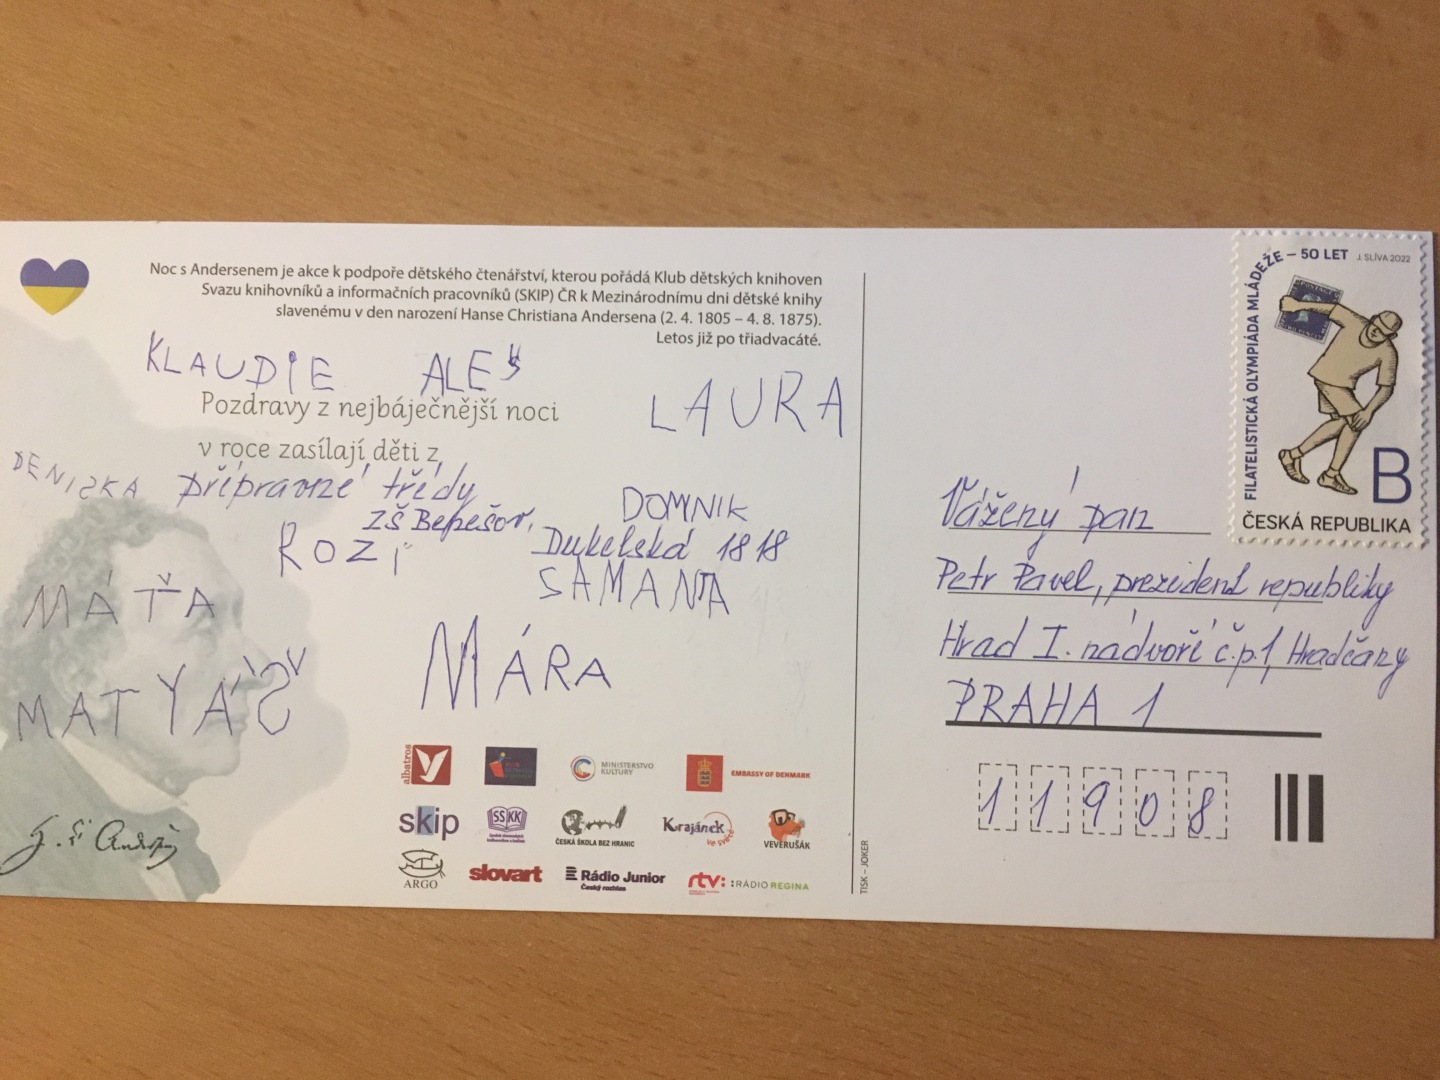 Noc s Andersenem je akce k podpoře dětského čtenářství, kterou pořádá Klub dětských knihoven
Svazu knihovníků a informačních pracovníků (SKIP) ČR k Mezinárodnímu dni dětské knihy
slavenému v den narození Hanse Christiana Andersena (2. 4. 1805 – 4. 8. 1875).
Letos již po třiadvacáté.
KLAUDIE ALEŠ
LAURA
Pozdravy z nejbáječnější noci
v roce zasílají děti z
DENISKA přípravné třídy
ZŠ Benešov,
DOMNIK
ROZI
Dukelská 1818
SAMANTA
MÁŤA
MÁRA
MATYÁŠ
albatros
MINISTERSTVO
KULTURY
EMBASSY OF DENMARK
skip
SSKK
ČESKÁ ŠKOLA BEZ HRANIC
Krajánek
ve světě
VEVERUŠÁK
ARGO
slovart
Rádio Junior
Český rozhlas
rtv: :RÁDIO REGINA
TISK – JOKER
FILATELISTICKÁ OLYMPIÁDA MLÁDEŽE – 50 LET J. SLÍVA 2022
B
ČESKÁ REPUBLIKA
Vážený pan
Petr Pavel, prezident republiky
Hrad I. nádvoří č.p.1, Hradčany
PRAHA 1
11908